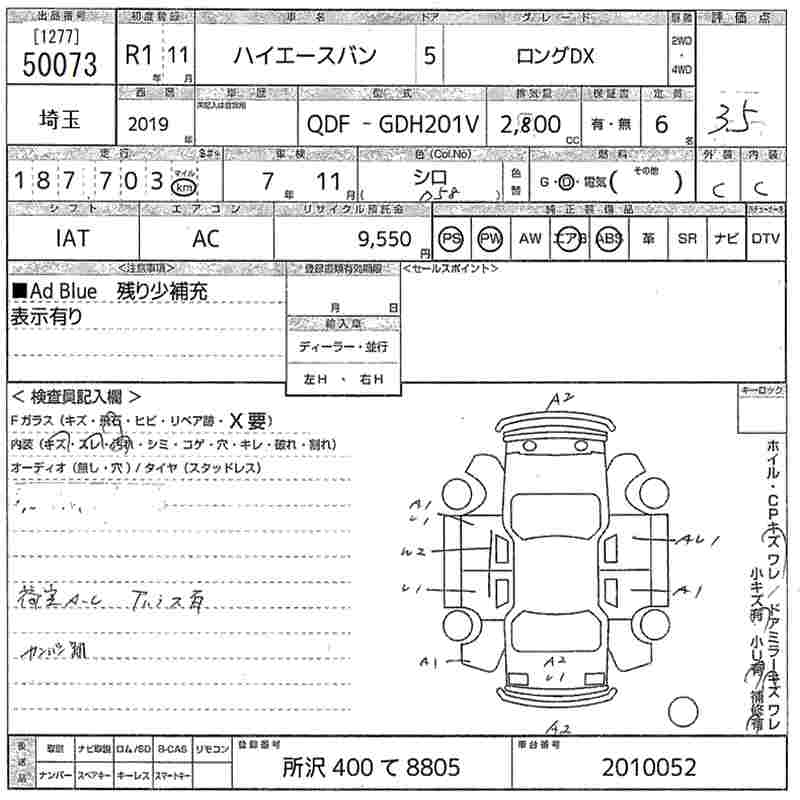 出品番号 初度登録 車名 ドア グレード 駆動 評価点
[1277]
50073 R1 年 11 月 ハイエースバン 5 ロングDX 2WD・4WD
3.5
埼玉 西暦 車歴 型式 排気量 保証書 定員
2019 年 QDF - GDH201V 2,800 cc 有・無 6 名
走行 車検 色(Col.No) 燃料 外装 内装
187,703 マイル km 7 年 11 月 シロ ( 058 ) 色替 G・D・電気( その他 ) C C
シフト エアコン リサイクル預託金 純正装備品
IAT AC 9,550 円 PS PW AW エアB ABS 革 SR ナビ DTV
<注意事項> 登録書類有効期限 <セールスポイント>
■Ad Blue 残り少補充
表示有り
月 日
輸入車
ディーラー・並行
左H ・ 右H
< 検査員記入欄 >
Fガラス(キズ・飛石・ヒビ・リペア跡・X要)
内装(キズ・スレ・汚れ・シミ・コゲ・穴・キレ・破れ・割れ)
オーディオ(無し・穴)/タイヤ(スタッドレス)
荷室A-U
カンバン跡
キーロック
A2
A1
U1
AU1
W2
U1
A1
A1
A2
U1
A2
ホイル・CPキズ ワレ/ドアミラーキズ ワレ
小キズ有 小U有 補修有
後送品 取説 ナビ取説 ロム/SD B-CAS リモコン 登録番号 車台番号
ナンバー スペアキー キーレス スマートキー 所沢 400 て 8805 2010052